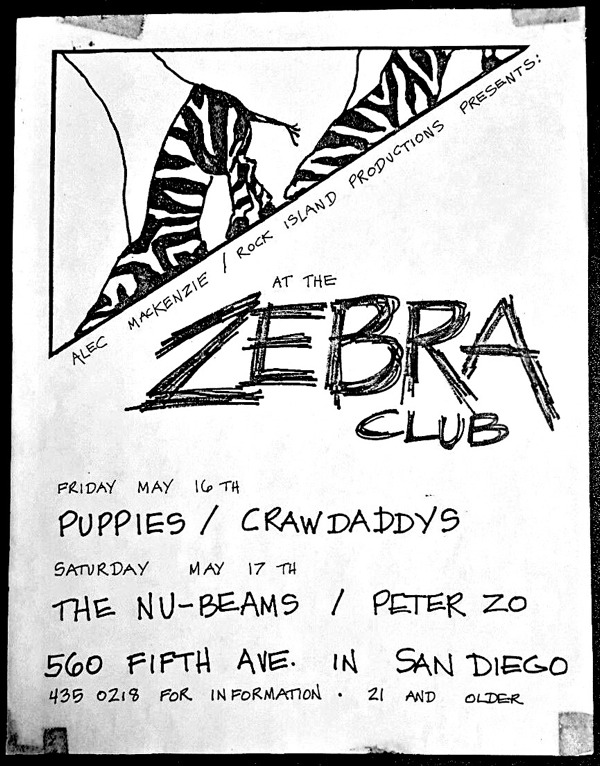 ALEC MACKENZIE / ROCK ISLAND PRODUCTIONS PRESENTS:
AT THE
ZEBRA
CLUB
FRIDAY MAY 16TH
PUPPIES / CRAWDADDYS
SATURDAY MAY 17TH
THE NU-BEAMS / PETER ZO
560 FIFTH AVE. IN SAN DIEGO
435 0218 FOR INFORMATION · 21 AND OLDER